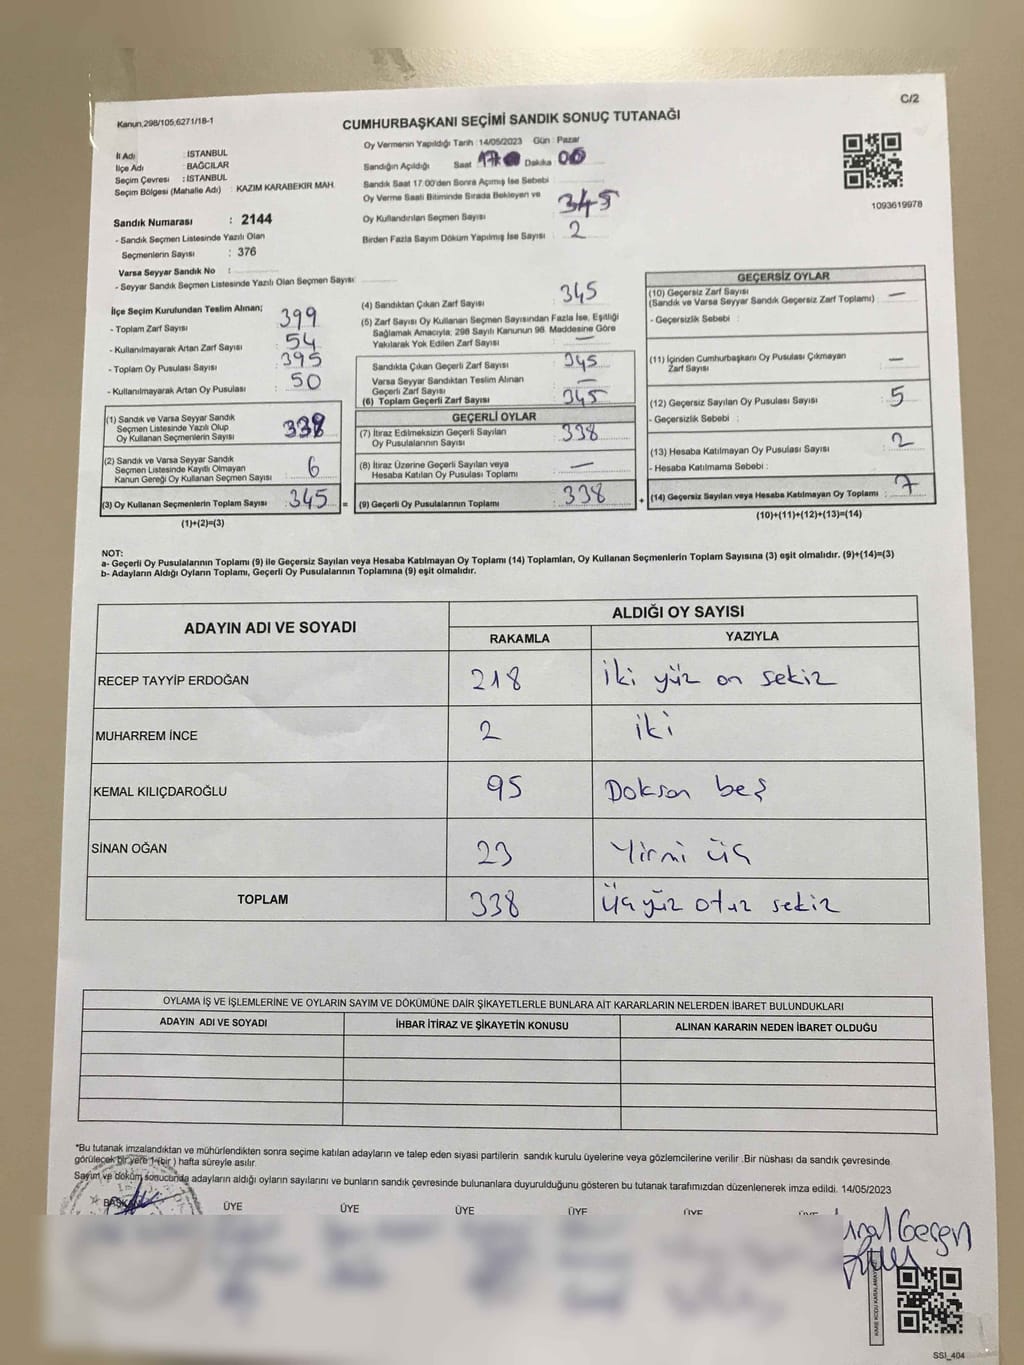 C/2
Kanun;298/105;6271/18-1
CUMHURBAŞKANI SEÇİMİ SANDIK SONUÇ TUTANAĞI
İl Adı : İSTANBUL
İlçe Adı : BAĞCILAR
Seçim Çevresi : İSTANBUL
Seçim Bölgesi (Mahalle Adı) : KAZIM KARABEKİR MAH.
Sandık Numarası : 2144
- Sandık Seçmen Listesinde Yazılı Olan
Seçmenlerin Sayısı : 376
Varsa Seyyar Sandık No :
- Seyyar Sandık Seçmen Listesinde Yazılı Olan Seçmen Sayısı :
Oy Vermenin Yapıldığı Tarih : 14/05/2023 Gün : Pazar
Sandığın Açıldığı Saat 17 Dakika 00
Sandık Saat 17:00'den Sonra Açımış İse Sebebi :
Oy Verme Saati Bitiminde Sırada Bekleyen ve
Oy Kullandırılan Seçmen Sayısı : 345
Birden Fazla Sayım Döküm Yapılmış İse Sayısı : 2
1093619978
İlçe Seçim Kurulundan Teslim Alınan;
- Toplam Zarf Sayısı : 399
- Kullanılmayarak Artan Zarf Sayısı : 54
- Toplam Oy Pusulası Sayısı : 395
- Kullanılmayarak Artan Oy Pusulası : 50
(1) Sandık ve Varsa Seyyar Sandık
Seçmen Listesinde Yazılı Olup
Oy Kullanan Seçmenlerin Sayısı : 338
(2) Sandık ve Varsa Seyyar Sandık
Seçmen Listesinde Kayıtlı Olmayan
Kanun Gereği Oy Kullanan Seçmen Sayısı : 6
(3) Oy Kullanan Seçmenlerin Toplam Sayısı : 345 =
(1)+(2)=(3)
(4) Sandıktan Çıkan Zarf Sayısı : 345
(5) Zarf Sayısı Oy Kullanan Seçmen Sayısından Fazla İse, Eşitliği
Sağlamak Amacıyla; 298 Sayılı Kanunun 98. Maddesine Göre
Yakılarak Yok Edilen Zarf Sayısı : —
Sandıkta Çıkan Geçerli Zarf Sayısı : 345
Varsa Seyyar Sandıktan Teslim Alınan
Geçerli Zarf Sayısı : —
(6) Toplam Geçerli Zarf Sayısı : 345
GEÇERLİ OYLAR
(7) İtiraz Edilmeksizin Geçerli Sayılan
Oy Pusulalarının Sayısı : 338
(8) İtiraz Üzerine Geçerli Sayılan veya
Hesaba Katılan Oy Pusulası Sayısı : —
(9) Geçerli Oy Pusulalarının Toplamı : 338 +
GEÇERSİZ OYLAR
(10) Geçersiz Zarf Sayısı
(Sandık ve Varsa Seyyar Sandık Geçersiz Zarf Toplamı) : —
- Geçersizlik Sebebi :
(11) İçinden Cumhurbaşkanı Oy Pusulası Çıkmayan
Zarf Sayısı : —
(12) Geçersiz Sayılan Oy Pusulası Sayısı : 5
- Geçersizlik Sebebi :
(13) Hesaba Katılmayan Oy Pusulası Sayısı : 2
- Hesaba Katılmama Sebebi :
(14) Geçersiz Sayılan veya Hesaba Katılmayan Oy Toplamı : 7
(10)+(11)+(12)+(13)=(14)
NOT:
a- Geçerli Oy Pusulalarının Toplamı (9) ile Geçersiz Sayılan veya Hesaba Katılmayan Oy Toplamı (14) Toplamları, Oy Kullanan Seçmenlerin Toplam Sayısına (3) eşit olmalıdır. (9)+(14)=(3)
b- Adayların Aldığı Oyların Toplamı, Geçerli Oy Pusulalarının Toplamına (9) eşit olmalıdır.
ADAYIN ADI VE SOYADI
ALDIĞI OY SAYISI
RAKAMLA YAZIYLA
RECEP TAYYİP ERDOĞAN 218 İki yüz on sekiz
MUHARREM İNCE 2 iki
KEMAL KILIÇDAROĞLU 95 Doksan beş
SİNAN OĞAN 23 Yirmi üç
TOPLAM 338 Üç yüz otuz sekiz
OYLAMA İŞ VE İŞLEMLERİNE VE OYLARIN SAYIM VE DÖKÜMÜNE DAİR ŞİKAYETLERLE BUNLARA AİT KARARLARIN NELERDEN İBARET BULUNDUKLARI
ADAYIN ADI VE SOYADI İHBAR İTİRAZ VE ŞİKAYETİN KONUSU ALINAN KARARIN NEDEN İBARET OLDUĞU
*Bu tutanak imzalandıktan ve mühürlendikten sonra seçime katılan adayların ve talep eden siyasi partilerin sandık kurulu üyelerine veya gözlemcilerine verilir .Bir nüshası da sandık çevresinde
görülecek bir yere 1 (bir ) hafta süreyle asılır.
Sayım ve döküm sonucunda adayların aldığı oyların sayılarını ve bunların sandık çevresinde bulunanlara duyurulduğunu gösteren bu tutanak tarafımızdan düzenlenerek imza edildi. 14/05/2023
ÜYE ÜYE ÜYE ÜYE ÜYE
SSİ_404